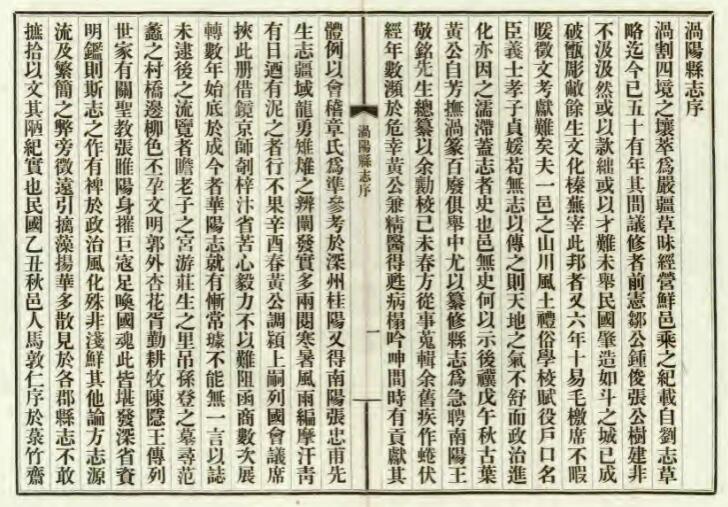 渦陽縣志序
渦割四境之壤萃為嚴疆草昧經營鮮邑乘之紀載自劉志草
略迄今已五十有年其間議修者前憲鄒公鍾俊張公樹建非
不汲汲然或以款絀或以才難未舉民國肇造如斗之城已成
破甑彫敝餘生文化榛蕪宰此邦者又六年十易毛檄席不暇
暖徵文考獻難矣夫一邑之山川風土禮俗學校賦役戶口名
臣義士孝子貞媛苟無志以傳之則天地之氣不舒而政治進
化亦因之濡滯蓋志者史也邑無史何以示後禩戊午秋古葉
黃公自芳撫渦篆百廢俱舉中尤以纂修縣志為急聘南陽王
敬銘先生總纂以余勷校己未春方從事蒐輯余舊疾作蜷伏
經年數瀕於危幸黃公兼精醫得甦病榻吟呻間時有貢獻其
渦陽縣志序
一
體例以會稽章氏為準參考於深州桂陽又得南陽張忠甫先
生志疆域龍勇雉雊之辨闡發實多兩閱寒暑風雨編摩汗青
有日迺有泥之者行不果辛酉春黃公調潁上嗣列國會議席
挾此册借鏡京師剞梓汴省苦心毅力不以難阻函商數次展
轉數年始底於成今者華陽志就有慚常璩不能無一言以誌
未逮後之流覽者瞻老子之宮游莊生之里吊孫登之墓尋范
蠡之村橋邊柳色丕孕文明郭外杏花胥勤耕牧陳隱王傳列
世家有關聖教張睢陽身摧巨寇足喚國魂此皆堪發深省資
明鑑則斯志之作有裨於政治風化殊非淺鮮其他論方志源
流及繁簡之弊旁徵遠引摛藻揚華多散見於各郡縣志不敢
摭拾以文其陋紀實也民國乙丑秋邑人馬敦仁序於菉竹齋